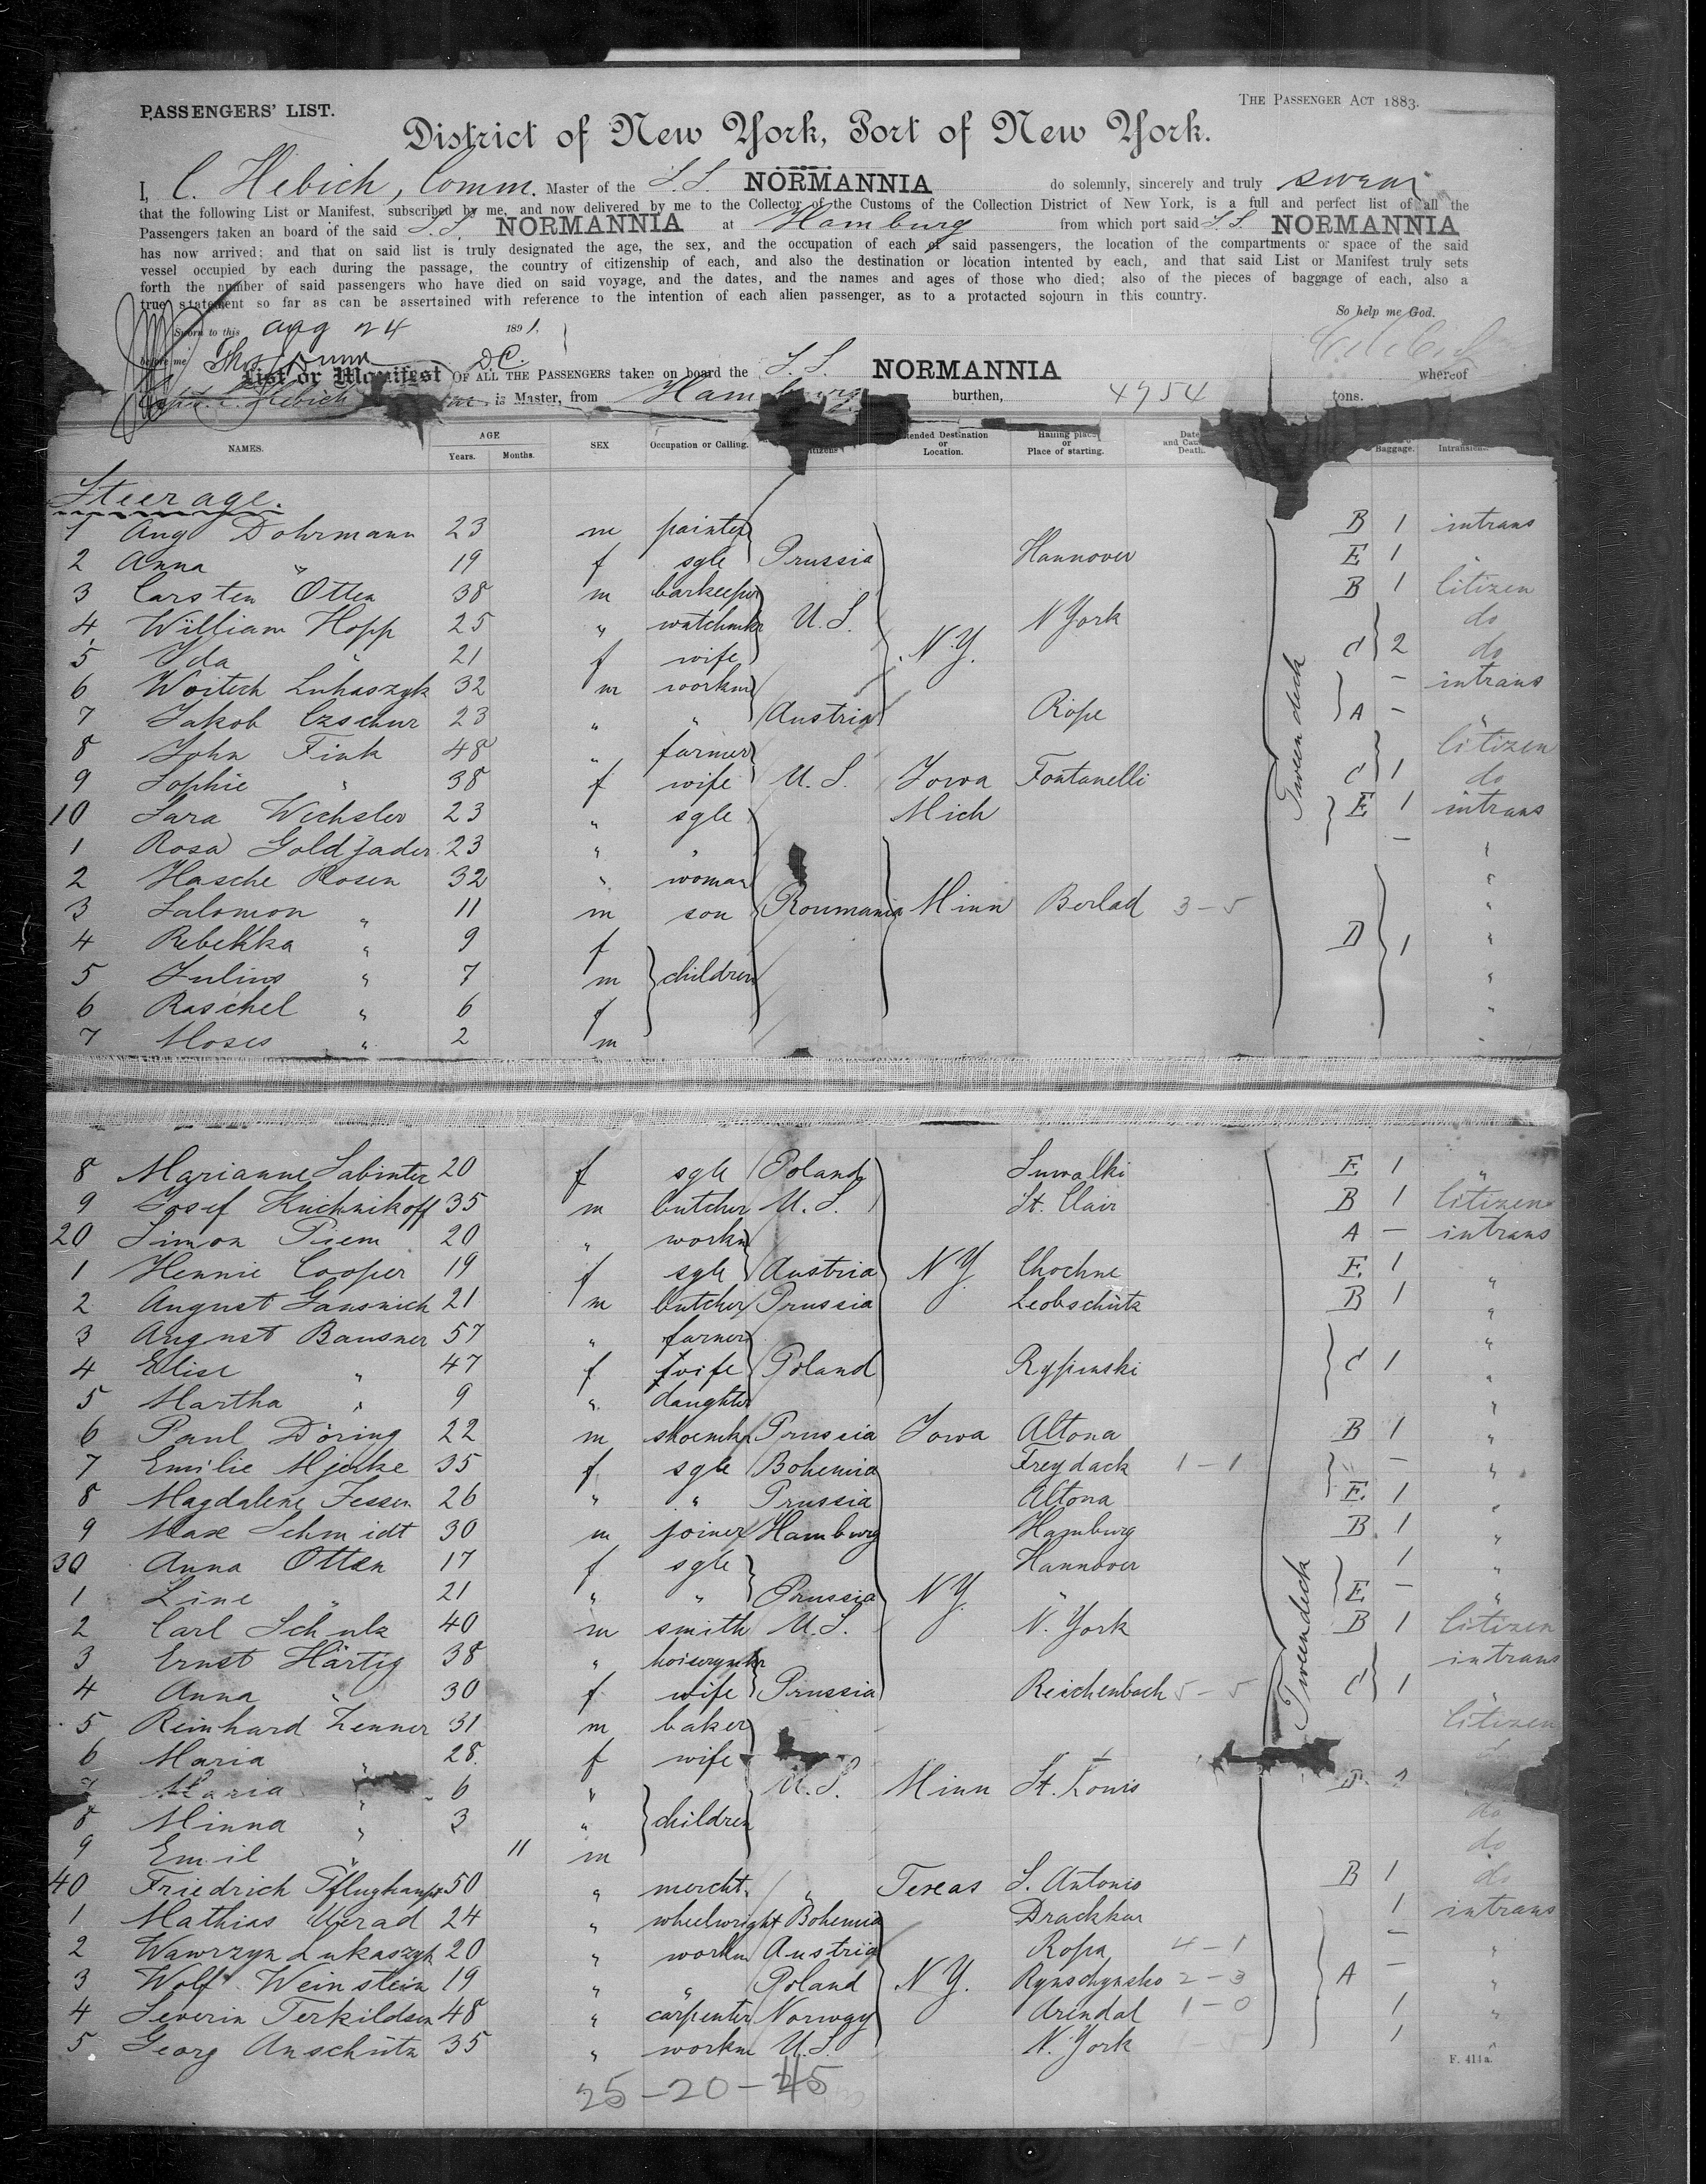 PASSENGERS' LIST.
THE PASSENGER ACT 1883.
District of New York, Port of New York.
I, C. Hebich, Comm. Master of the S.S. NORMANNIA do solemnly, sincerely and truly swear
that the following List or Manifest, subscribed by me, and now delivered by me to the Collector of the Customs of the Collection District of New York, is a full and perfect list of all the
Passengers taken an board of the said S.S. NORMANNIA at Hamburg from which port said S.S. NORMANNIA
has now arrived; and that on said list is truly designated the age, the sex, and the occupation of each of said passengers, the location of the compartments or space of the said
vessel occupied by each during the passage, the country of citizenship of each, and also the destination or location intented by each, and that said List or Manifest truly sets
forth the number of said passengers who have died on said voyage, and the dates, and the names and ages of those who died; also of the pieces of baggage of each, also a
true statement so far as can be assertained with reference to the intention of each alien passenger, as to a protacted sojourn in this country.
So help me God.
Sworn to this Aug 24 1891.
before me D.C.
List or Manifest OF ALL THE PASSENGERS taken on board the S.S. NORMANNIA whereof
Capt. C. Hebich is Master, from Hamburg burthen, 4954 tons.
NAMES. AGE Years. Months. SEX Occupation or Calling. Intended Destination or Location. Hailing place or Place of starting. Date and Cause Death. Baggage.
Steerage.
1 Aug Dohrmann 23 m painter B 1 intrans
2 Anna " 19 f sgle Prussia Hannover E 1 "
3 Carsten Otten 38 m barkeeper B 1 Citizen
4 William Hopp 25 " watchmkr U.S. N York do
5 Ida " 21 f wife N.Y. C 2 do
6 Woitech Luhaszyk 32 m workm - intrans
7 Jakob Czschur 23 " " Austria Rope A - "
8 John Fink 48 " farmer Citizen
9 Sophie " 38 f wife U.S. Iowa Fontanelli C 1 do
10 Sara Wechsler 23 " sgle Mich E 1 intrans
1 Rosa Goldjader 23 " " - "
2 Hasche Rosen 32 " woman "
3 Salomon " 11 m son Roumania Minn Berlad 3-5 "
4 Rebekka " 9 f D 1 "
5 Julius " 7 m children "
6 Raschel " 6 f "
7 Moses " 2 m "
8 Marianne Sabinter 20 f sgle Poland Suwalki E 1 "
9 Josef Kuchnikoff 35 m butcher U.S. St. Clair B 1 Citizen
20 Simon Piem 20 " workm A - intrans
1 Hennie Cooper 19 f sgle Austria N.Y. Chochne E 1 "
2 August Gansnich 21 m butcher Prussia Leobschütz B 1 "
3 August Bausner 57 " farmer "
4 Elise " 47 f wife Poland Rypinski C 1 "
5 Martha " 9 " daughter "
6 Paul Döring 22 m shoemkr Prussia Iowa Altona B 1 "
7 Emilie Mjerke 35 f sgle Bohemia Freydack 1-1 - "
8 Magdalene Jessen 26 " " Prussia Altona E. 1 "
9 Max Schmidt 30 m joiner Hamburg Hamburg B. 1 "
30 Anna Otten 17 f sgle Hannover 1 "
1 Line " 21 " " Prussia N.Y. " E - "
2 Carl Schulz 40 m smith U.S. N. York B 1 Citizen
3 Ernst Härtig 38 " hoiserymkr intrans
4 Anna " 30 f wife Prussia Reichenbach 5-5 C 1 "
5 Reinhard Zenner 31 m baker Citizen
6 Maria " 28 f wife
7 Maria " 6 " U.S. Minn St. Louis
8 Minna " 3 " children do
9 Emil " 11 m do
40 Friedrich Pflughaupt 50 " mercht. " Texas S. Antonio B 1 do
1 Mathias Uhrad 24 " wheelwright Bohemia Drachkur 1 intrans
2 Wawrzyn Lukaszyk 20 " workm Austria Ropa 4-1 - "
3 Wolf Weinstein 19 " " Poland N.Y. Rynschynsko 2-3 A - "
4 Severin Terkildsen 48 " carpenter Norway Arindal 1-0 1 "
5 Georg Anschütz 35 " workm U.S. N. York 1 "
Tween deck
Tweendeck
F. 411a.
25-20-45